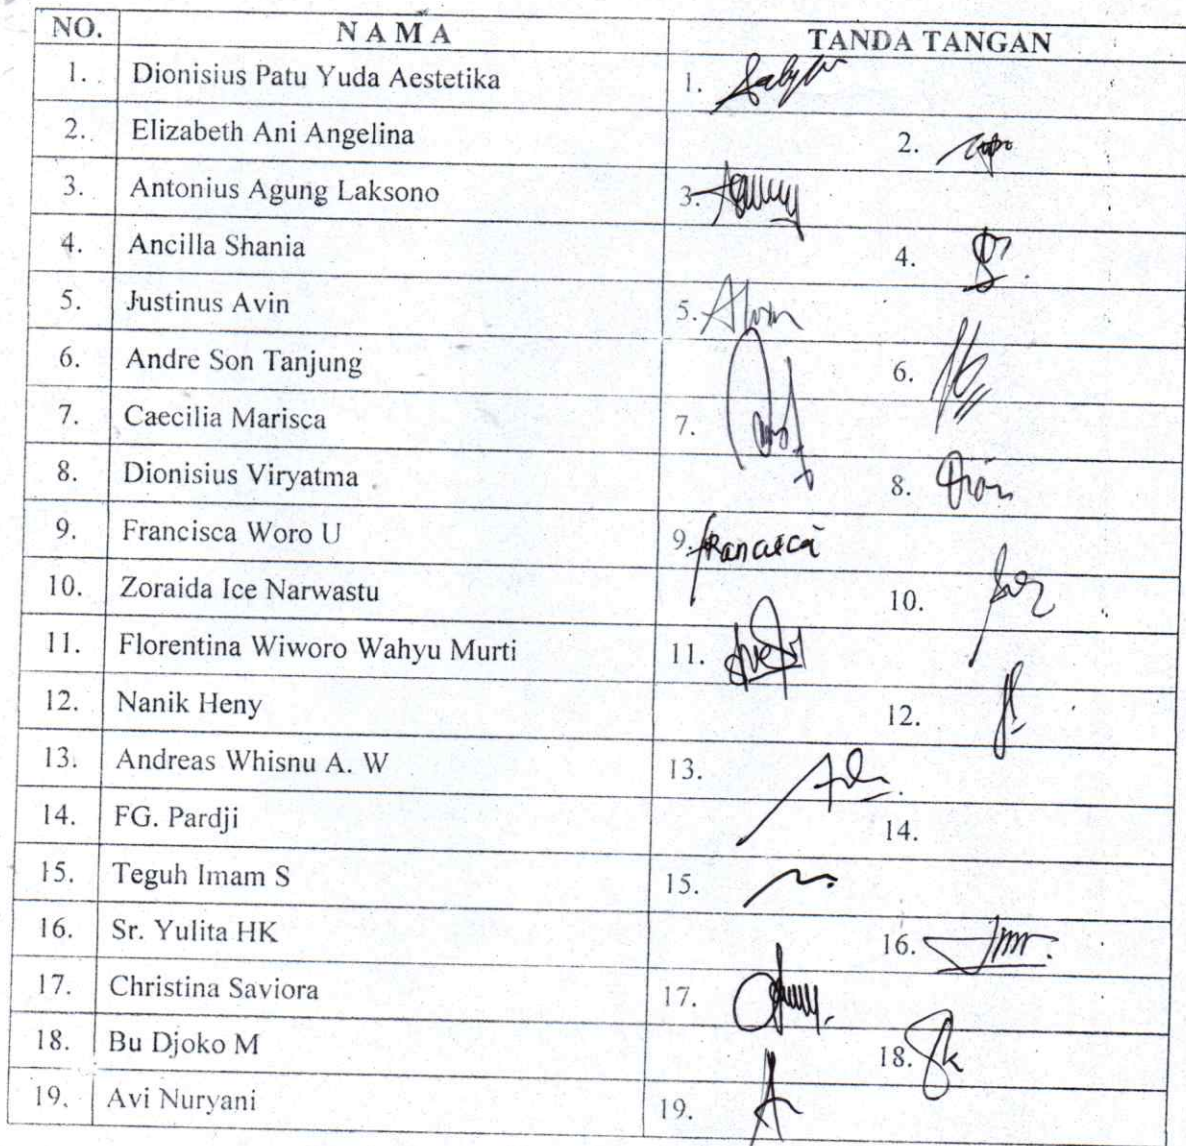 NO. N A M A TANDA TANGAN
1. Dionisius Patu Yuda Aestetika 1.
2. Elizabeth Ani Angelina 2.
3. Antonius Agung Laksono 3.
4. Ancilla Shania 4.
5. Justinus Avin 5.
6. Andre Son Tanjung 6.
7. Caecilia Marisca 7.
8. Dionisius Viryatma 8.
9. Francisca Woro U 9. Francisca
10. Zoraida Ice Narwastu 10.
11. Florentina Wiworo Wahyu Murti 11.
12. Nanik Heny 12.
13. Andreas Whisnu A. W 13.
14. FG. Pardji 14.
15. Teguh Imam S 15.
16. Sr. Yulita HK 16.
17. Christina Saviora 17.
18. Bu Djoko M 18.
19. Avi Nuryani 19.